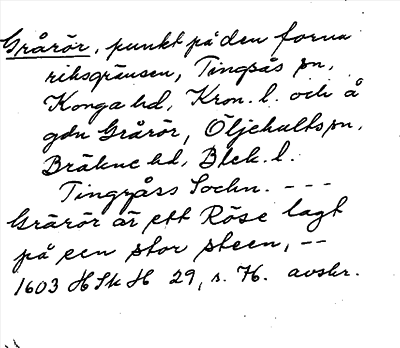 Grårör, punkt på den forna
riksgränsen, Tingsås sn,
Konga hd, Kron. l. och å
gdn Grårör, Öljehults sn,
Bräkne hd, Blek. l.
Tingzåss Sochn. - - -
Grårör är ett Röse lagt
på een stor steen, --
1603 HSkH 29, s. 76. avskr.